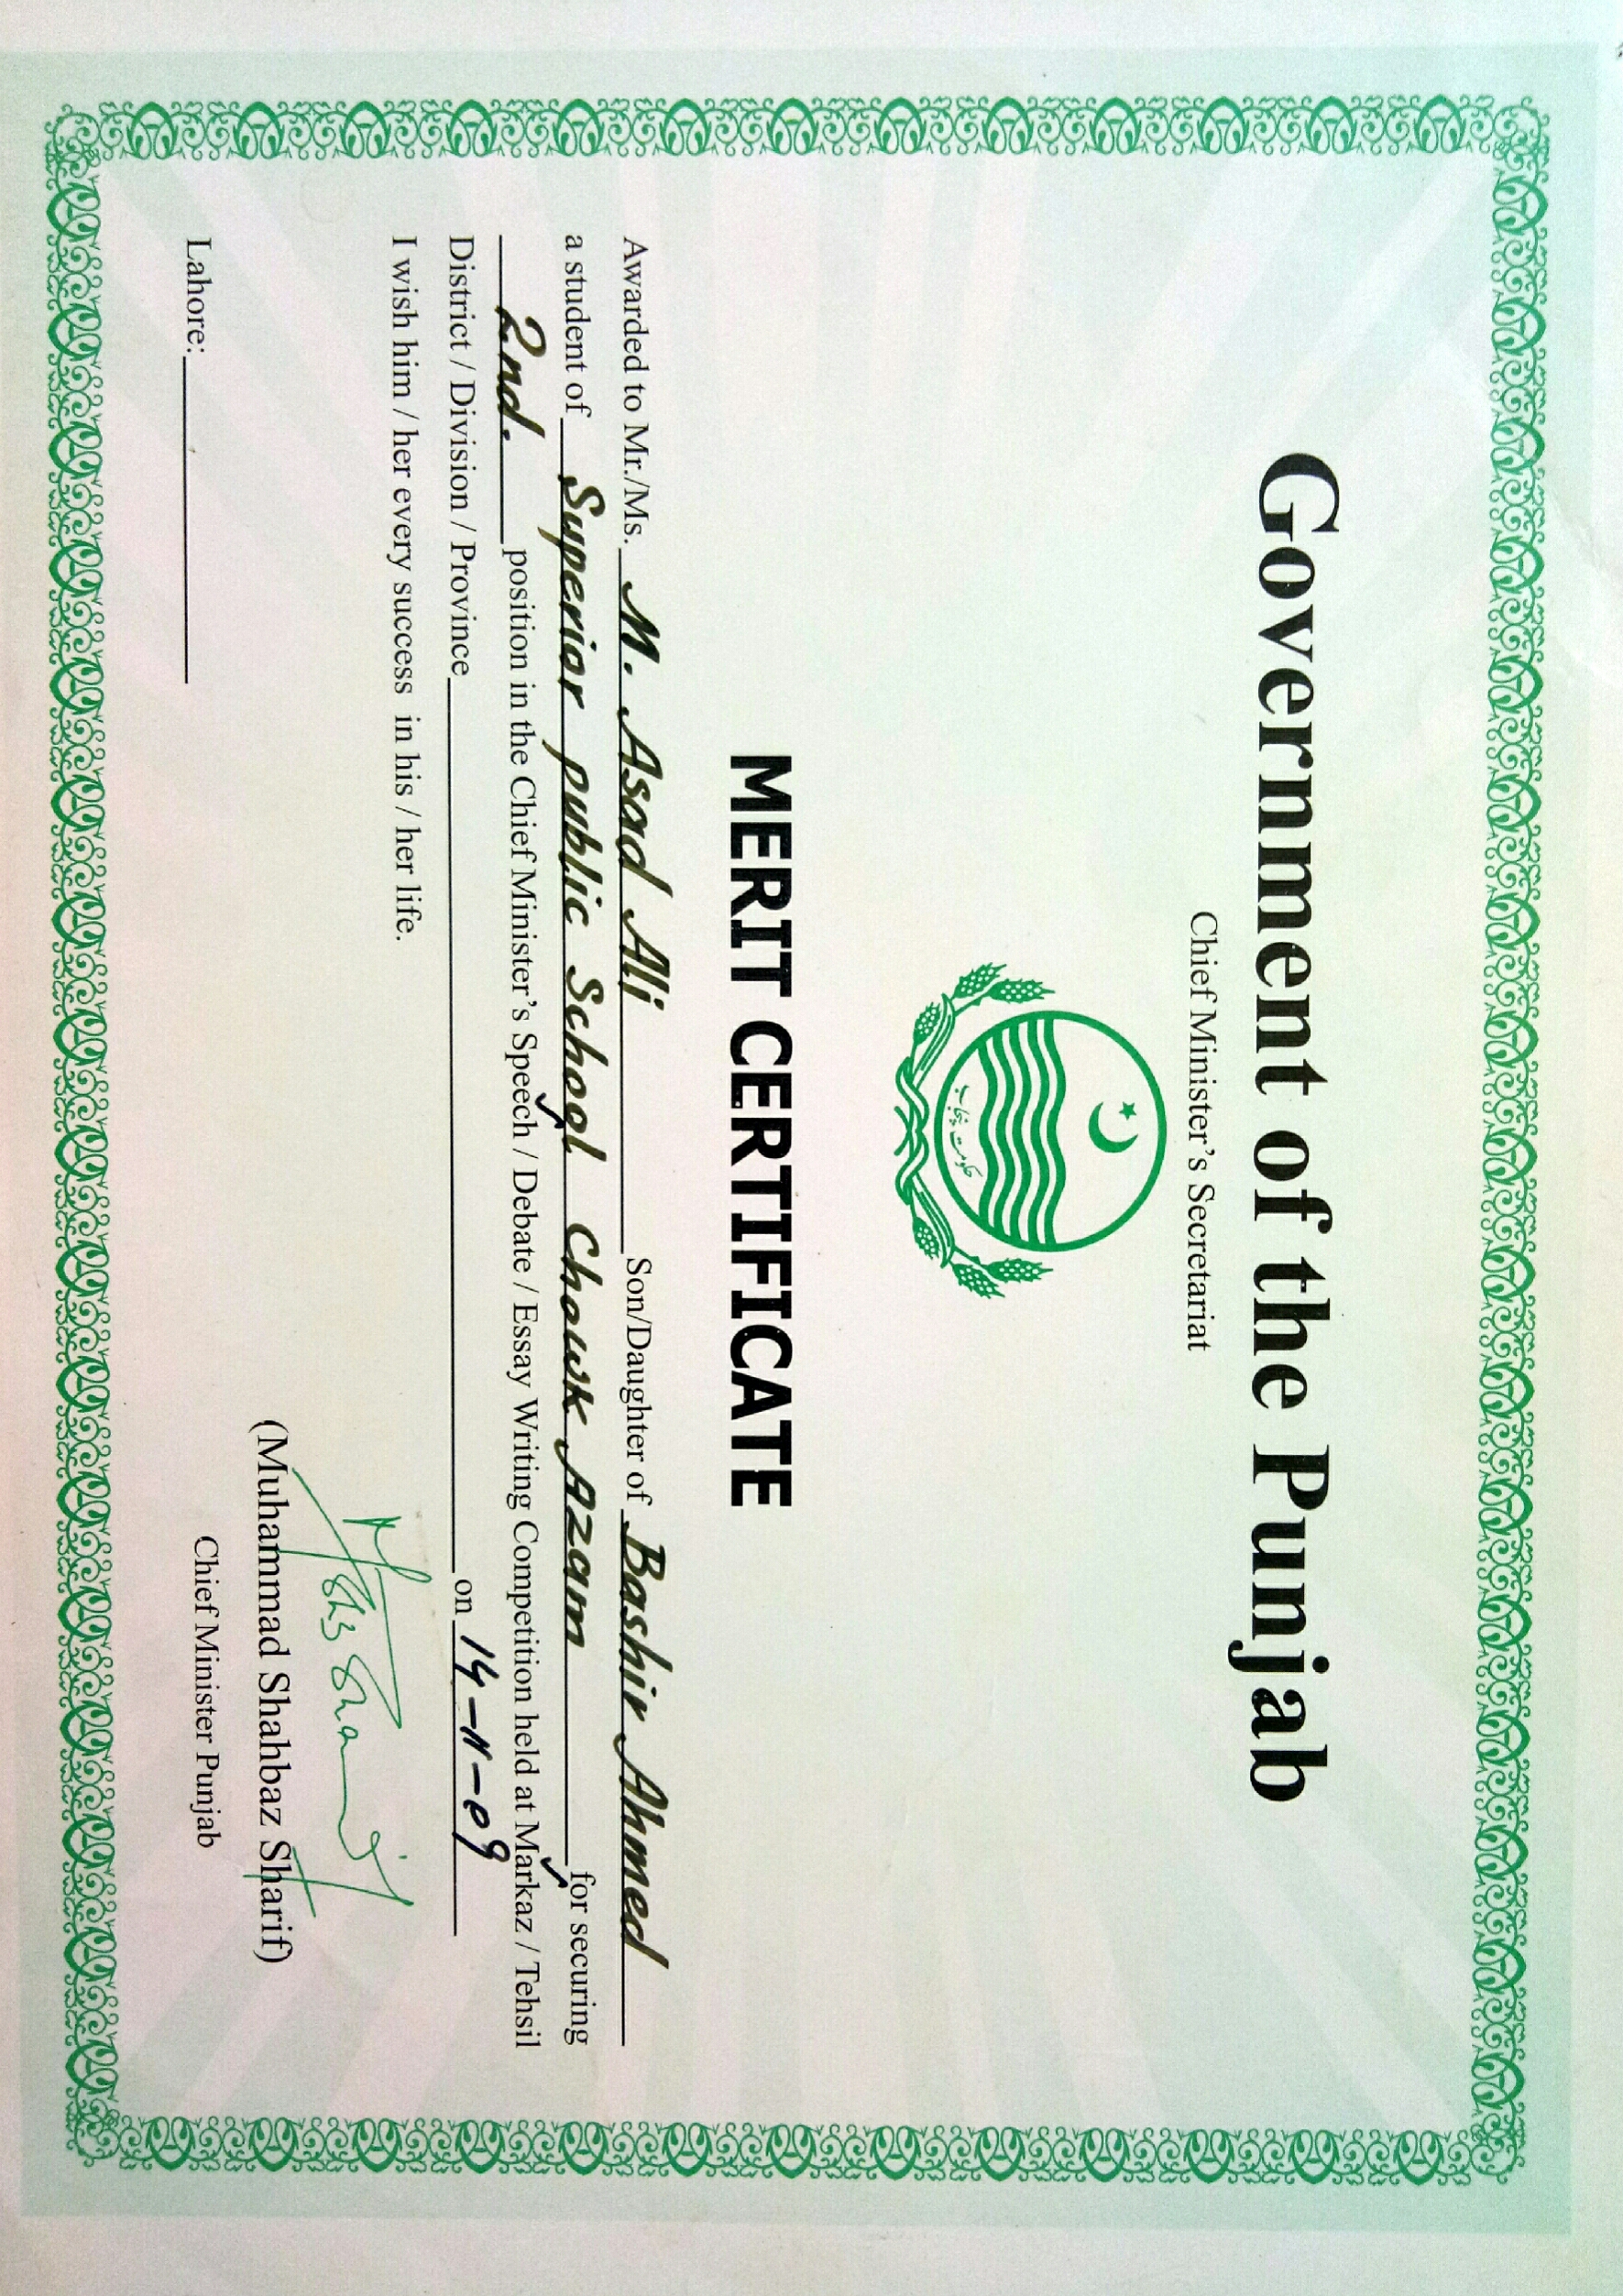 Government of the Punjab
Chief Minister's Secretariat
حکومت پنجاب
MERIT CERTIFICATE
Awarded to Mr./Ms. M. Asad Ali Son/Daughter of Bashir Ahmed
a student of Superior public School Chowk Azam for securing
2nd. position in the Chief Minister's Speech / Debate / Essay Writing Competition held at Markaz / Tehsil
District / Division / Province on 14-11-09
I wish him / her every success in his / her life.
(Muhammad Shahbaz Sharif)
Chief Minister Punjab
Lahore: